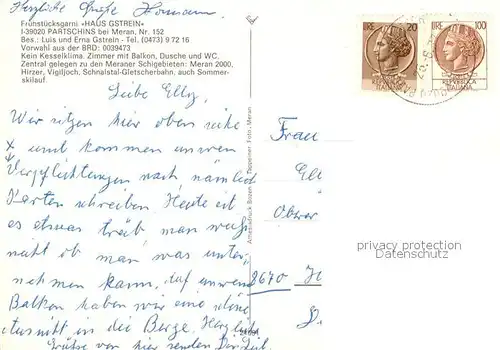 Herzliche Grüße Hermann
Frühstücksgarni «HAUS GSTREIN»
I-39020 PARTSCHINS bei Meran, Nr. 152
Bes.: Luis und Erna Gstrein - Tel. (0473) 9 72 16
Vorwahl aus der BRD: 0039473
Kein Kesselklima. Zimmer mit Balkon, Dusche und WC.
Zentral gelegen zu den Meraner Schigebieten: Meran 2000,
Hirzer, Vigiljoch, Schnalstal-Gletscherbahn, auch Sommer-
skilauf.
LIRE 20
REPUBBLICA
ITALIANA
LIRE 100
REPUBBLICA
ITALIANA
Liebe Elly,
Wir sitzen hier oben
und kommen unseren
Verpflichtungen nach nämlich
Karten schreiben. Heute ist
es etwas trüb man weiß
nicht ob man was unter-
nehmen kann, auf unserem
Balkon haben wir eine schöne
in die Berge. Herzliche
Grüße von hier senden
Foto: Tappeiner, Meran
Frau
Ell
Ober
8670
privacy protection
Datenschutz